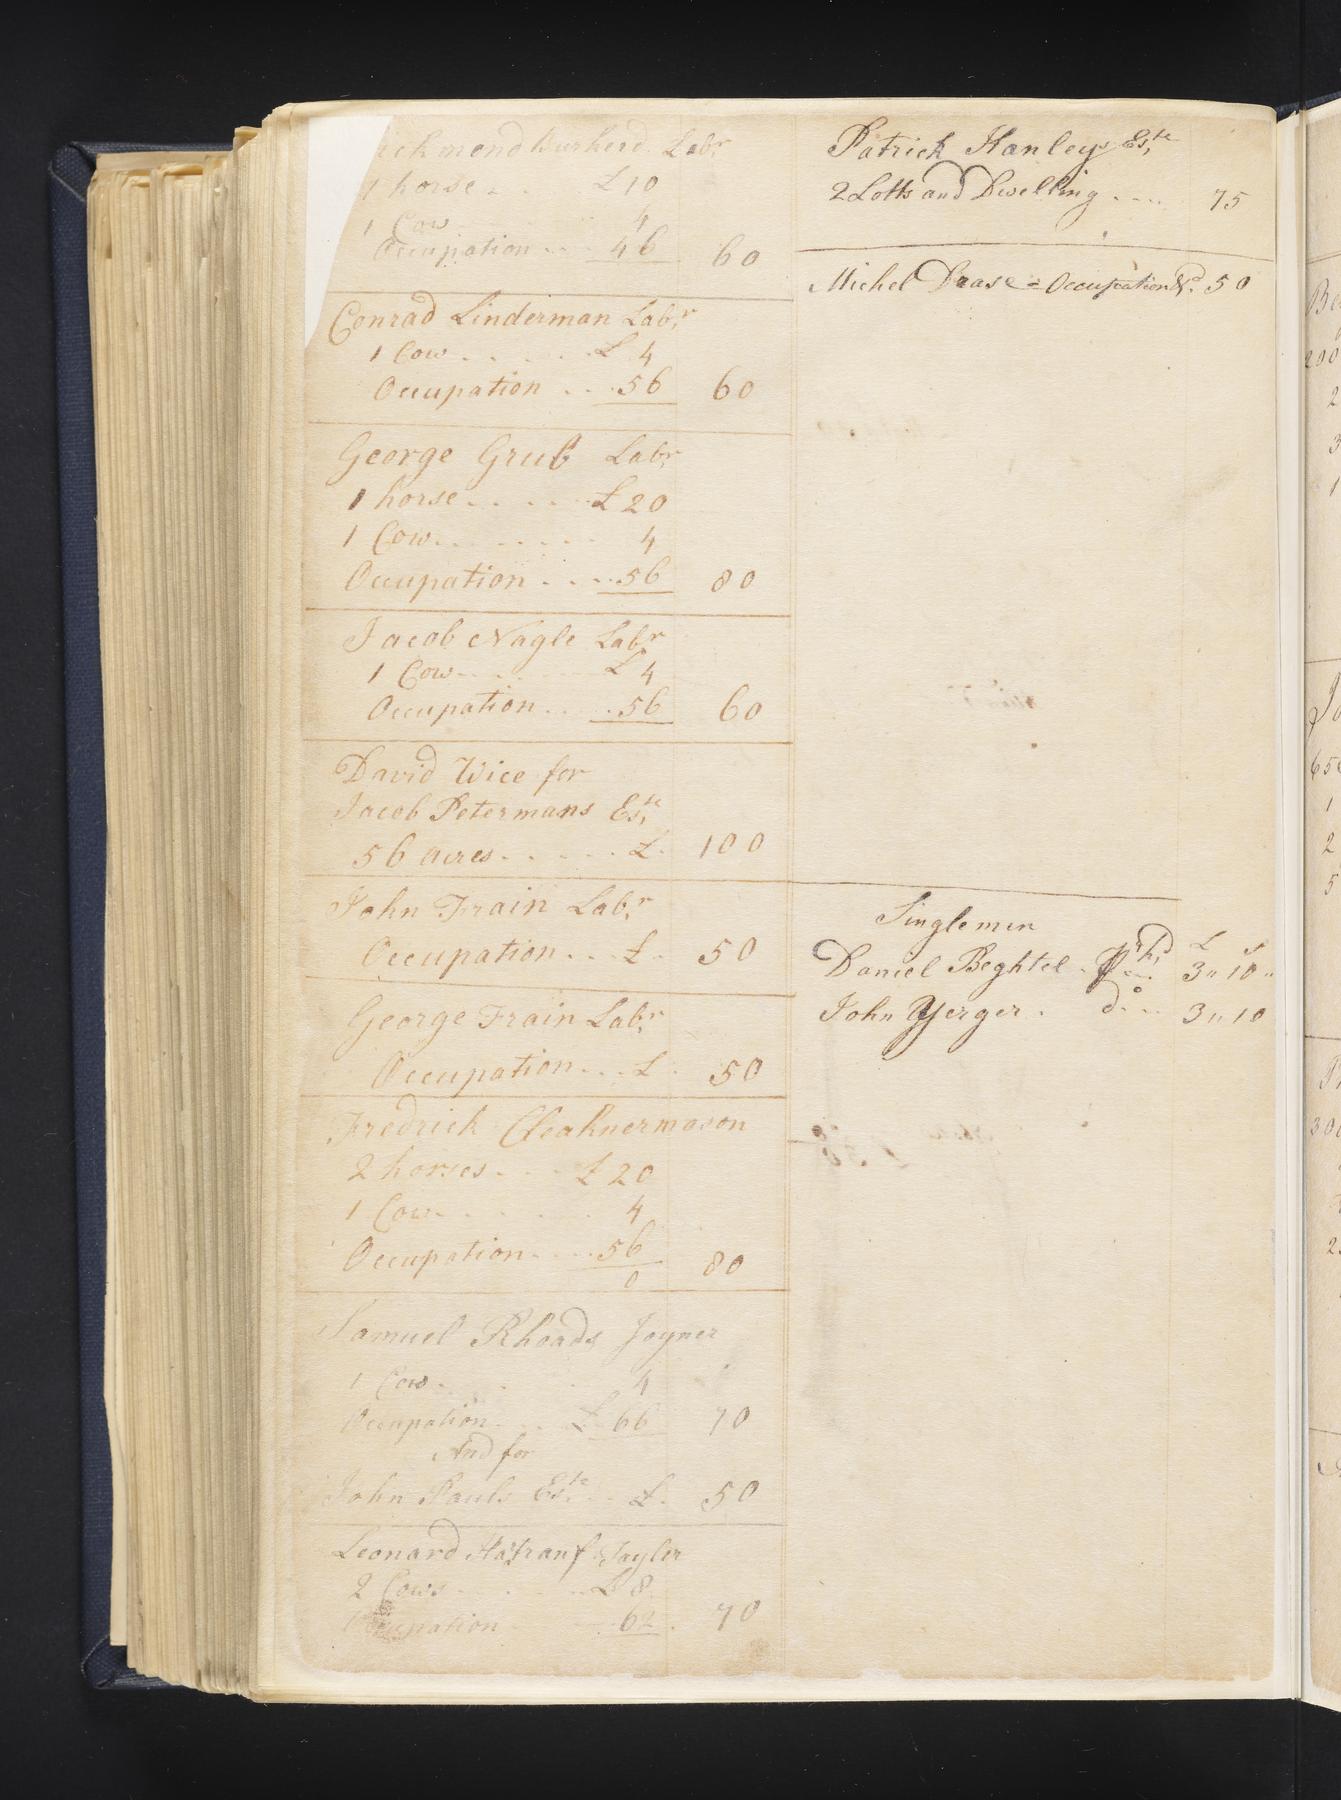 ichmond Burherd Labr
1 horse - . £10
1 Cow 4
Occupation ... 46 60
Conrad Linderman Labr
1 Cow . . . . . £ 4
Occupation . . . 56 60
George Grub Labr
1 horse . . . . £20
1 Cow . . . . . . 4
Occupation . . . . 56 80
Jacob Nagle Labr
1 Cow . . . . . £ 4
Occupation . . . 56 60
David Wice for
Jacob Petermans Este
56 acres . . . . . . £ . 100
John Frain Labr
Occupation . . . £ . 50
George Frain Labr
Occupation . . . £ . 50
Fredrick mason
2 horses . . . £ 20
1 Cow . . . . . 4
Occupation . . . . 56 80
0
Samuel Rhoads Joyner
1 Cow . . . 4
Occupation . . . £ 66 70
And for
John Pauls Este . . £ . 50
Leonard Taylor
2 Cows . . . . £ 8
Occupation . . . 62 . 70
Patrick Hanleys Este
2 Lotts and Dwelling . . . . 75
Michel Dease = Occupation &c. 50
Singlemen
£ s
Daniel Beghtel . 3 " 10 "
John Yerger . do . . . 3 " 10